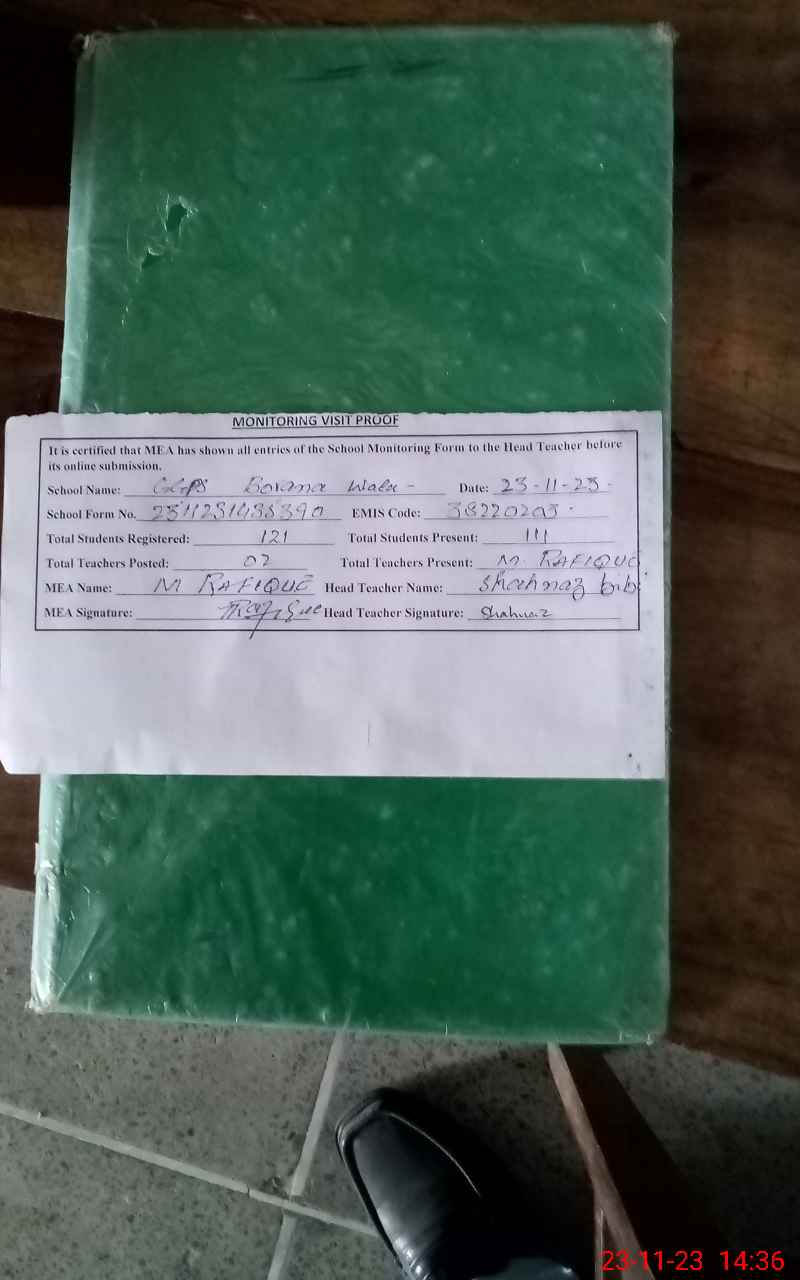 MONITORING VISIT PROOF
It is certified that MEA has shown all entries of the School Monitoring Form to the Head Teacher before
its online submission.
School Name: GGPS Borana Wala - Date: 23-11-23.
School Form No. EMIS Code: 38220203
Total Students Registered: 121 Total Students Present: 111
Total Teachers Posted: 02 Total Teachers Present: M. RAFIQUE
MEA Name: M RAFIQUE Head Teacher Name: Shahnaz bibi
MEA Signature: Rafique Head Teacher Signature: Shahnaz
23-11-23 14:36